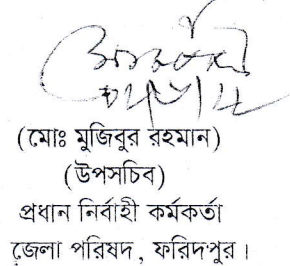 (মোঃ মুজিবুর রহমান)
(উপসচিব)
প্রধান নির্বাহী কর্মকর্তা
জেলা পরিষদ, ফরিদপুর।